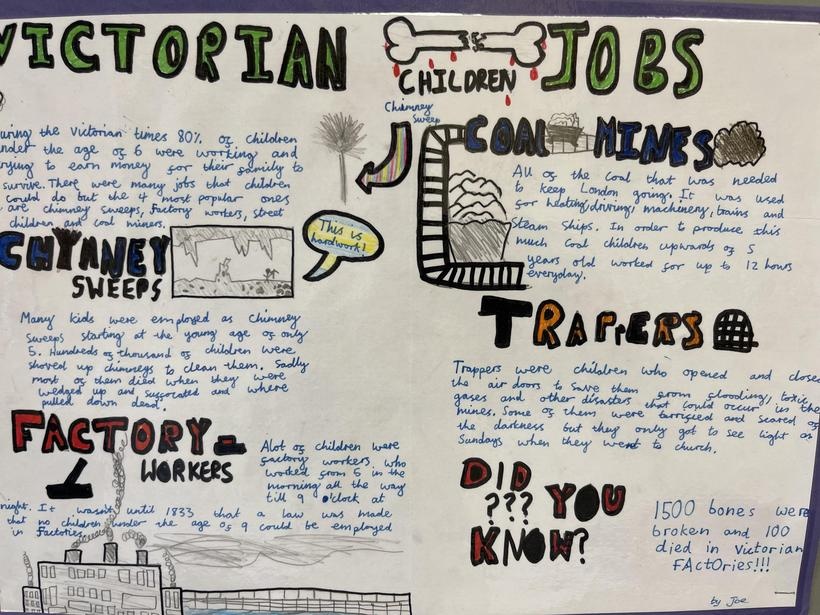 VICTORIAN CHILDREN JOBS
uring the Victorian times 80% of children
nder the age of 6 were working and
rying to earn money for their family to
survive. There were many jobs that children
could do but the 4 most popular ones
are chimney sweeps, factory workers, street
children and coal miners.
CHYMNEY
SWEEPS
This is
hardwork!
Many kids were employed as Chimney
Sweeps starting at the young age of only
5. Hundreds of thousand of children were
shoved up chimneys to clean them. Sadly
most of them died when they were
wedged up and suffocated and where
pulled down dead.
FACTORY-
WORKERS
Alot of children were
factory workers who
worked from 5 in the
morning all the way
till 9 o'clock at
night. It wasnt until 1833 that a law was made
that no children under the age of 9 could be employed
in factories
Chimney
Sweep
COAL MINES
All of the coal that was needed
to keep London going. It was used
for heating, driving, machinery, trains and
Steam Ships. In order to produce this
much coal children upwards of 5
years old worked for up to 12 hours
everyday.
TRAPPERS
Trappers were children who opened and closed
the air doors to save them from flooding, toxic
gases and other disasters that could occur in the
mines. Some of them were terrified and scared of
the darkness but they only got to see light on
Sundays when they went to church.
DID
??? YOU
KNOW?
1500 bones were
broken and 100
died in Victorian
FActOries!!!
by Joe